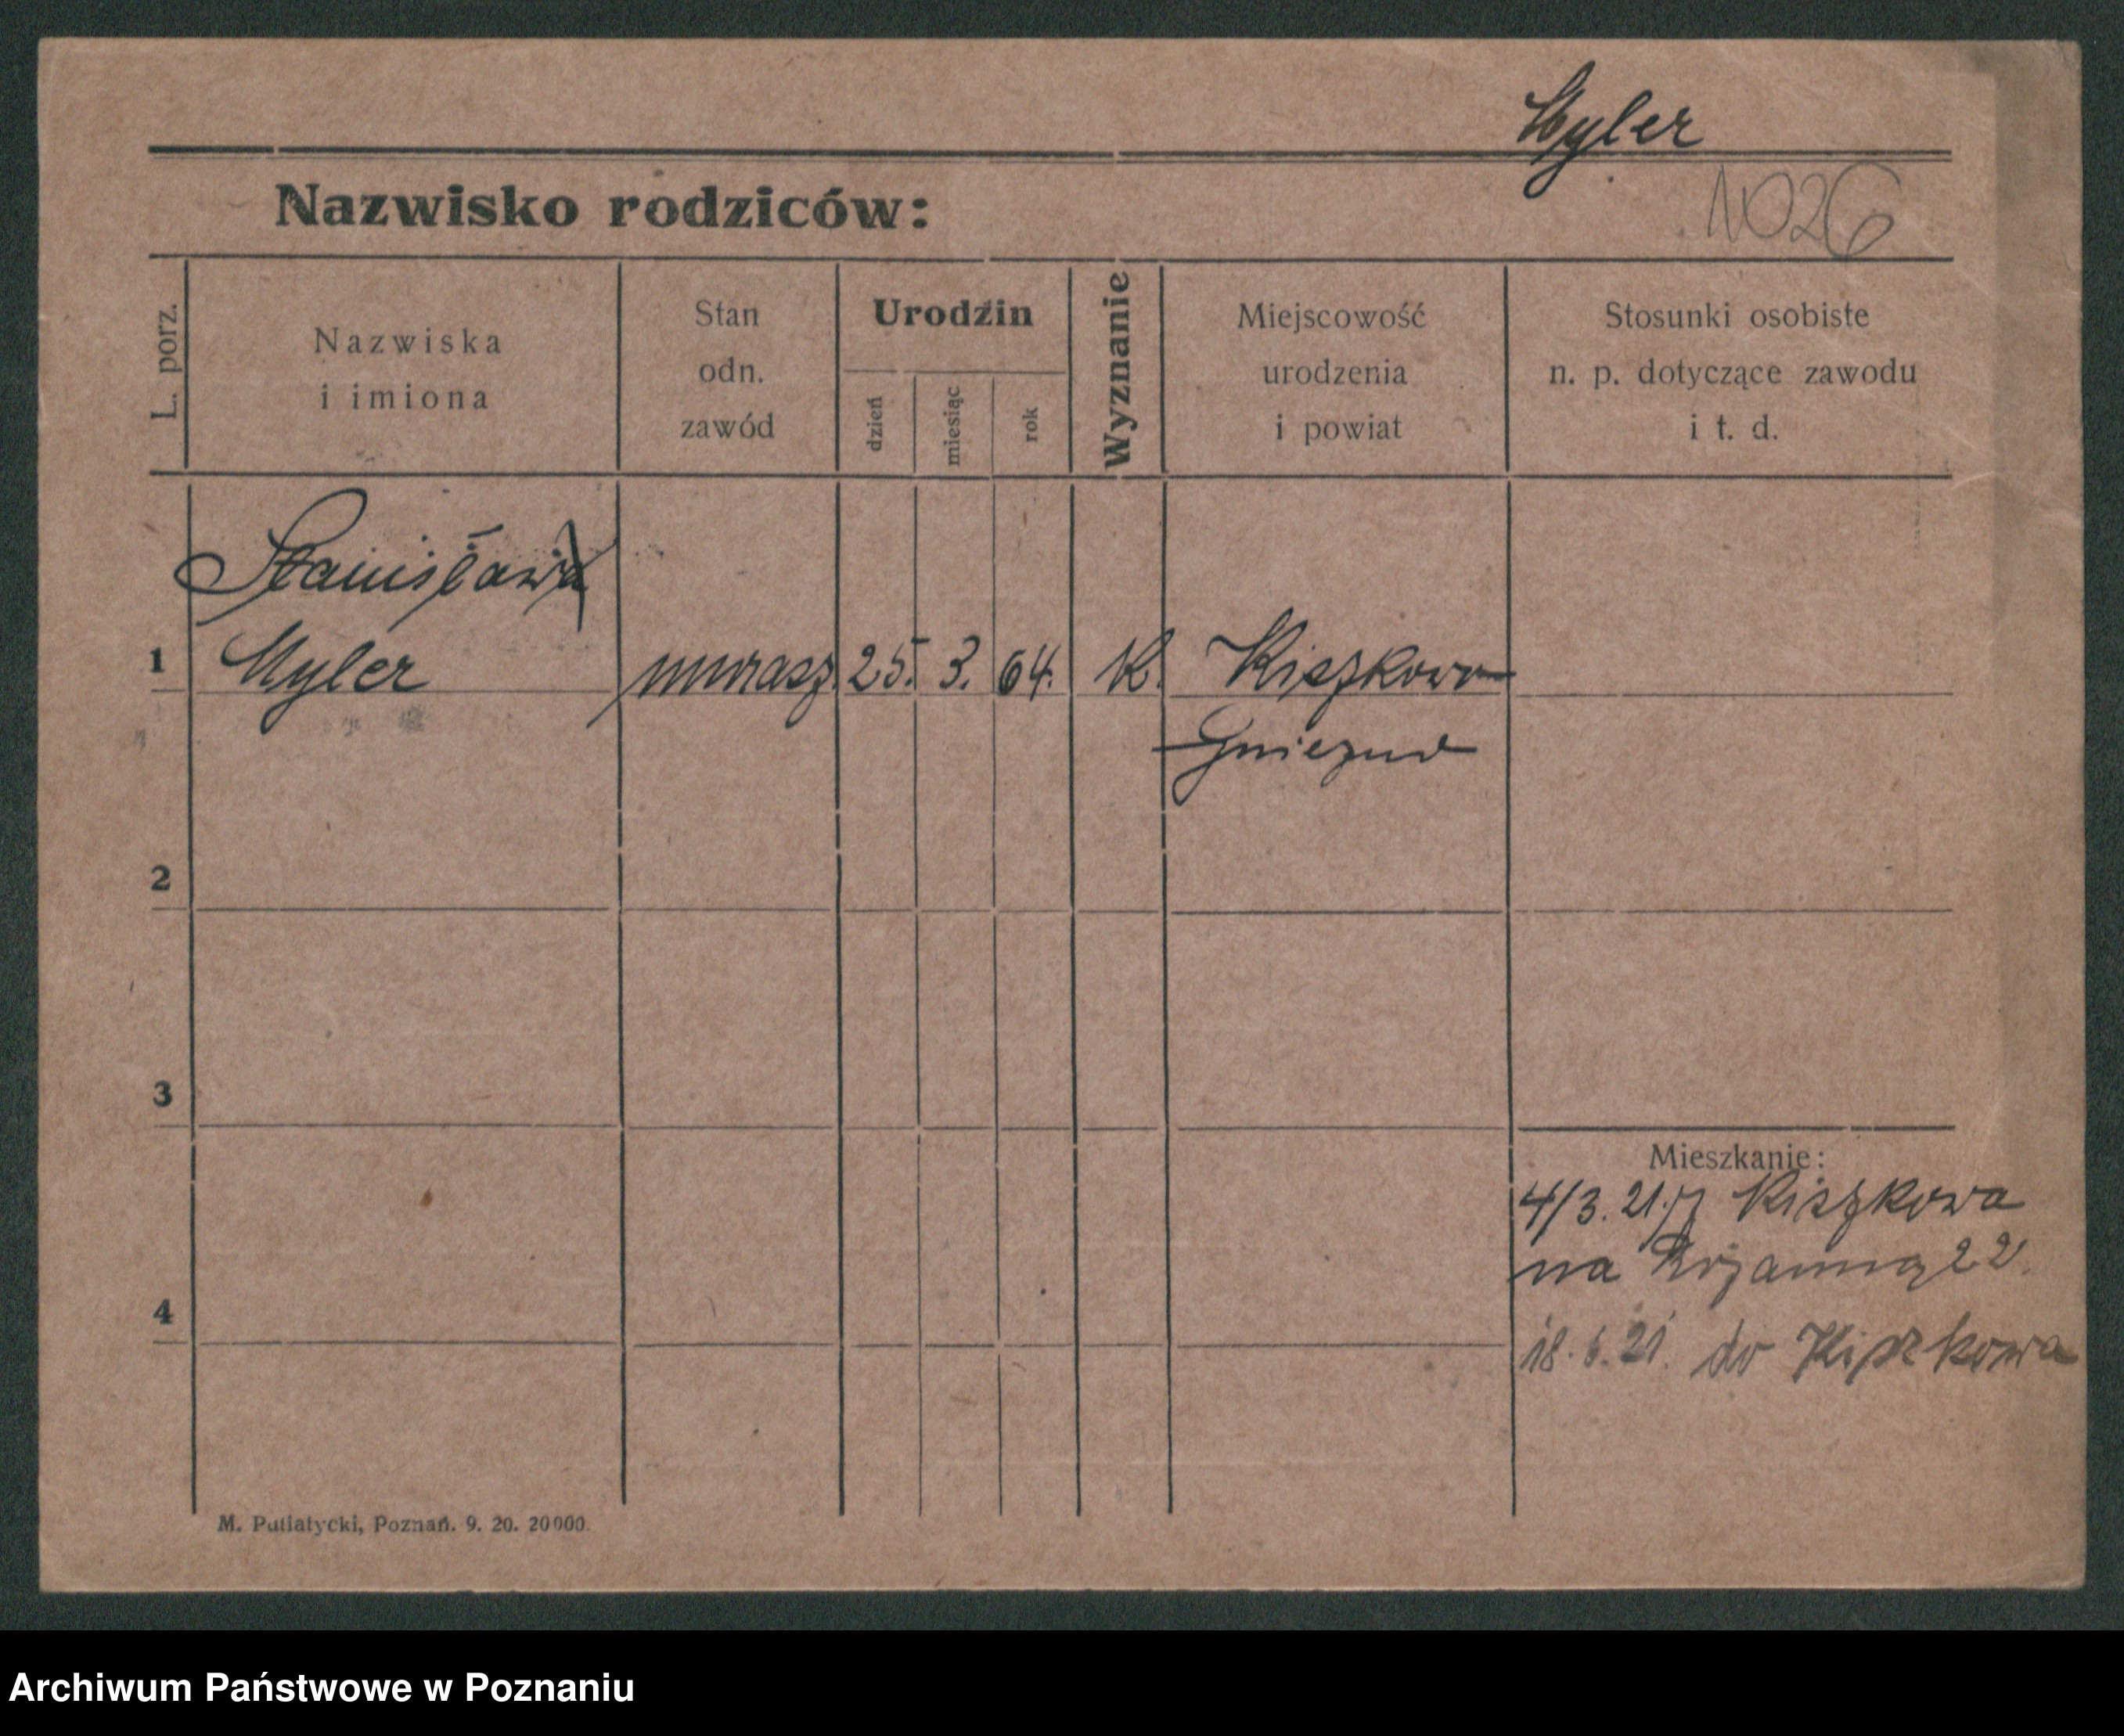 Hyler
Nazwisko rodziców:
1026
L. porz.
Nazwiska
i imiona
Stan
odn.
zawód
Urodzin
dzień
miesiąc
rok
Wyznanie
Miejscowość
urodzenia
i powiat
Stosunki osobiste
n. p. dotyczące zawodu
i t. d.
Stanisław
1 Hyler murarz. 25. 3. 64. K. Kiszkowo
Gniezno
2
3
Mieszkanie:
4/3. 21. z Kiszkowa
na Różanną 22.
4
18. 6. 21. do Kiszkowa
M. Putiatycki, Poznań. 9. 20. 20000.
Archiwum Państwowe w Poznaniu